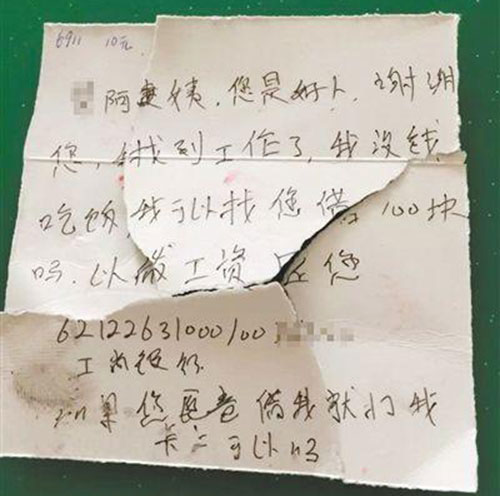 6911 10元
阿姨,您是好人,谢谢
您,我找到工作了,我没钱
吃饭我可以找您借100块
吗.以后工资还您
62122631000100
工商银行
如果您愿意借我就打我
卡上可以吗